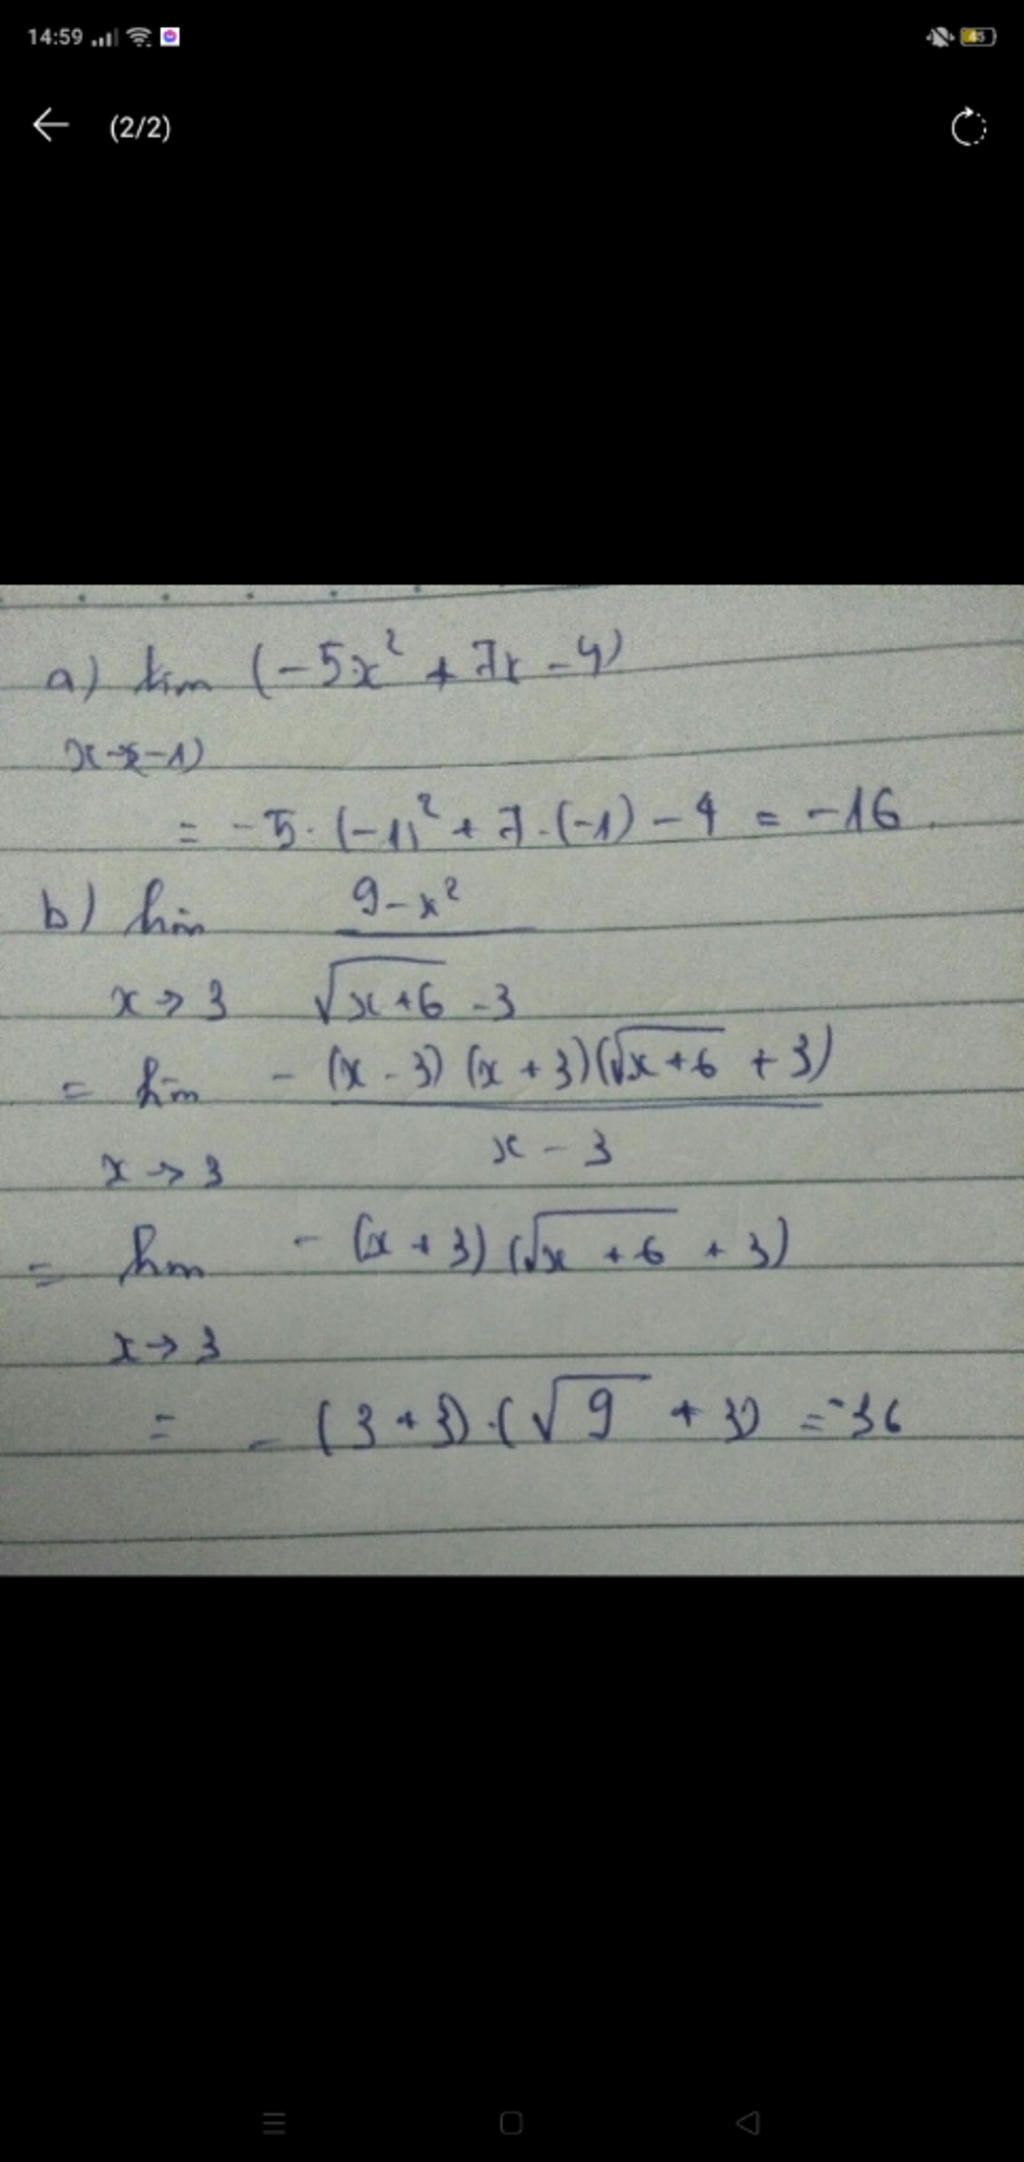 14:59
45
(2/2)
a) lim (-5x² + 7x - 4)
x→-1)
= -5.(-1)² + 7.(-1) - 4 = -16
b) lim 9-x²
x→3 √x+6 -3
= lim -(x-3)(x+3)(√x+6 + 3)
x→3 x-3
= lim -(x+3)(√x+6 + 3)
x→3
= -(3+3).(√9 + 3) = -36